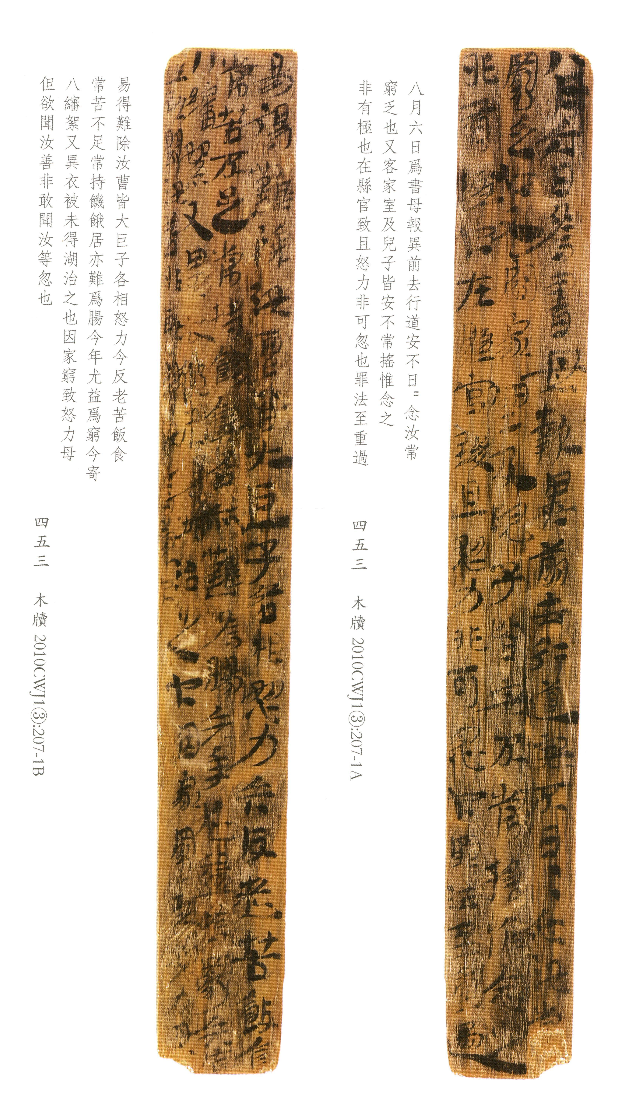 八月六日爲書母報異前去行道安不日=念汝常
窮乏也又客家室及兒子皆安不常搖惟念之
非有極也在縣官致且怒力非可忽也罪法至重過
四五三　木牘 2010CWJ1③:207-1A
易得難除汝曹皆大巨子各相怒力今反老苦飯食
常苦不足常持饑餓居亦難爲腸今年尤益爲窮今寄
八緵絮又異衣被未得湖治之也因家窮致怒力母
但欲聞汝善非敢聞汝等忽也
四五三　木牘 2010CWJ1③:207-1B